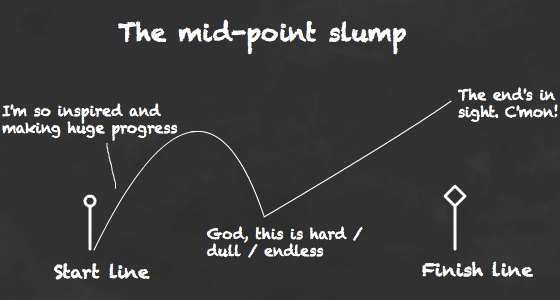 The mid-point slump
I'm so inspired and
making huge progress
The end's in
sight. C'mon!
God, this is hard /
dull / endless
Start line
Finish line